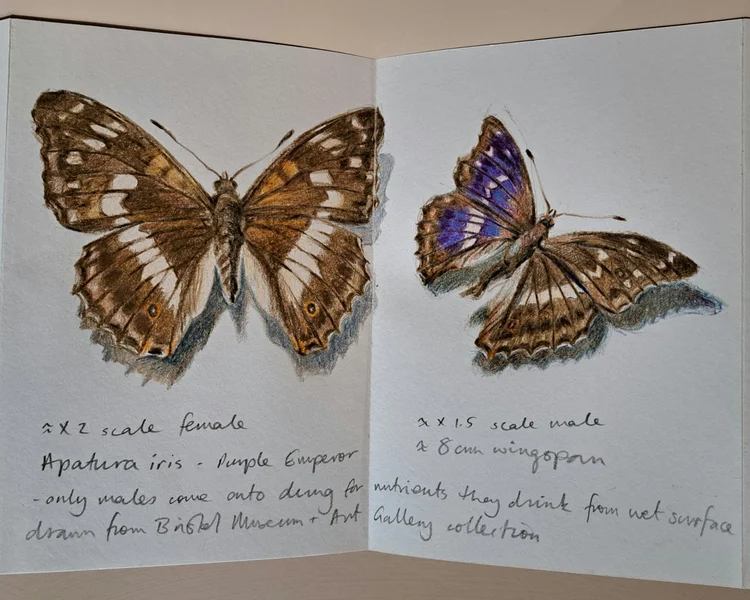 ≈ x 2 scale female
≈ x 1.5 scale male
≈ 8cm wingspan
Apatura iris - Purple Emperor
- only males come onto dung for nutrients they drink from wet surface
drawn from Bristol Museum + Art Gallery collection